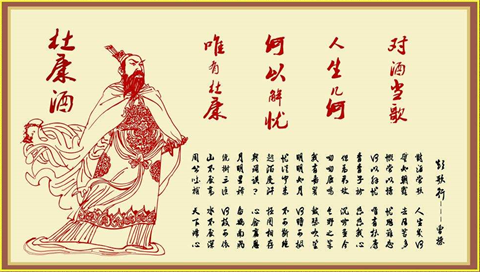 对酒当歌
人生几何
何以解忧
唯有杜康
杜康酒
短歌行——曹操
对酒当歌 人生几何
譬如朝露 去日苦多
慨当以慷 忧思难忘
何以解忧 唯有杜康
青青子衿 悠悠我心
但为君故 沉吟至今
呦呦鹿鸣 食野之苹
我有嘉宾 鼓瑟吹笙
明明如月 何时可掇
忧从中来 不可断绝
越陌度阡 枉用相存
契阔谈䜩 心念旧恩
月明星稀 乌鹊南飞
绕树三匝 何枝可依
山不厌高 水不厌深
周公吐哺 天下归心